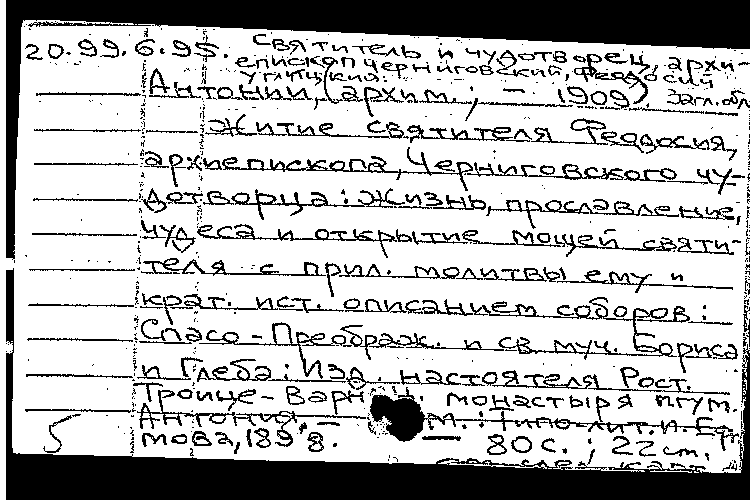 20.99.6.95. Святитель и чудотворец, архи-
епископ черниговский, Феодосий
углицкий.
Антоний, (архим.; – 1909). Загл. обл
Житие святителя Феодосия,
архиепископа, Черниговского чу-
дотворца: Жизнь, прославление,
чудеса и открытие мощей святи-
теля с прил. молитвы ему и
крат. ист. описанием соборов:
Спасо-Преображ. и св. муч. Бориса
и Глеба: Изд. настоятеля Рост.
Троице- монастыря игум.
Антония. – М.: Типо-лит. И. Еф
мова, 1898. — 80 с.; 22 см.
5